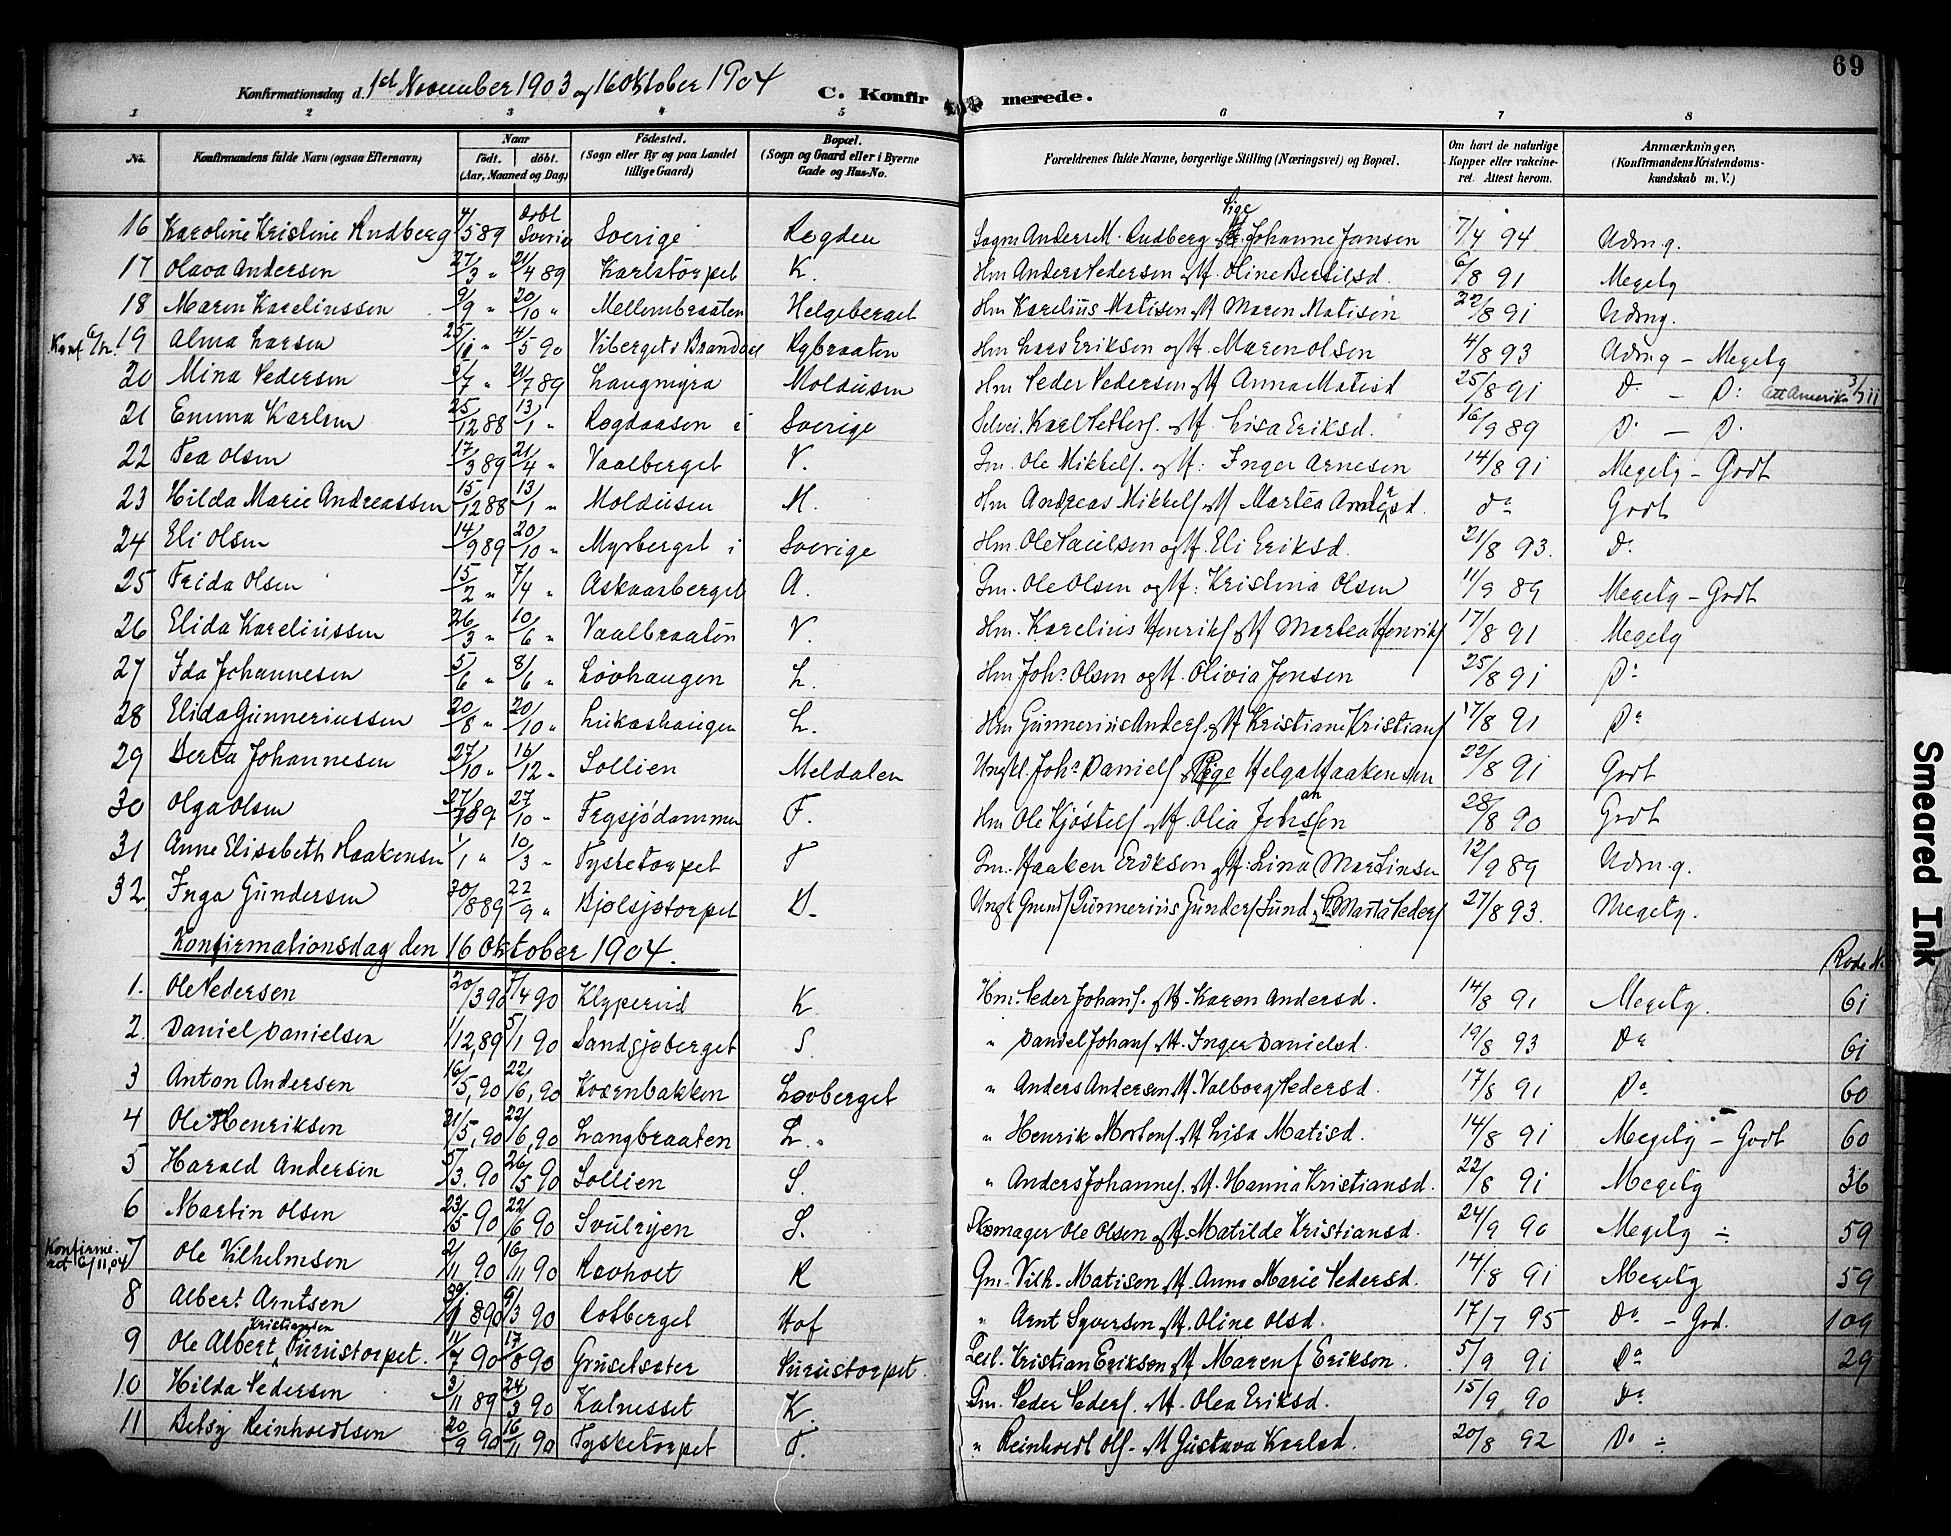 69
Konfirmationsdag d. 1ste November 1903 og 16 Oktober 1904 C. Konfirmerede.
1 2 3 4 5 6 7 8
No. Konfirmandens fulde Navn (ogsaa Efternavn) Naar født. døbt. (Aar, Maaned og Dag) Fødested. (Sogn eller By og paa Landet tillige Gaard) Bopæl. (Sogn og Gaard eller i Byerne Gade og Hus-No. Forældrenes fulde Navne, borgerlige Stilling (Næringsvei) og Bopæl. Om havt de naturlige Kopper eller vakcineret. Attest herom. Anmærkninger. (Konfirmandens Kristendomskundskab m. V.)
16 Karoline Kristine Rudberg 4/5 89 døbt Sverig Sverige Rogden Sagm Anders M. Rudberg Pige Johanne Jansen 7/4 94 Udm.g.
17 Olava Andersen 27/3 " 21/4 89 Karlstorpet K. Hm Anders Pedersen og H. Oline Bertilsd. 6/8 91 Megetg
18 Maren Kareliussen 9/9 " 20/10 " Mellembraaten Helgeberget Hm Karelius Matisen og H Maren Matisen 22/8 91 Udmg.
Konf 6/12. 19 Alma Larsen 25/11 " 4/5 90 Viberget i Brandval Rybraaten Hm Lars Eriksen og H. Maren Olsen 4/8 93 Udm g – Megetg
20 Mina Pedersen 3/7 " 21/7 89 Langmyra Moldusen Hm Peder Pedersen og H Anna Matisd 25/8 91 Do – Do: att Amerika 3/7 11
21 Emma Karlsen 25/12 88 13/1 " Rogdaasen i Sverige Selvei. Karl Petters. og H. Lisa Eriksd. 16/9 89 Do – Do
22 Tea Olsen 17/3 89 21/4 " Vaalberget V. Gm. Ole Mikkels. og H: Inger Arnesen 14/8 91 Megetg – Godt
23 Hilda Marie Andreassen 15/12 88 13/1 " Moldusen M. Hm Andreas Mikkels og H Martea 	da Godt
24 Eli Olsen 14/9 89 20/10 " Myrberget i Sverige Hm. Ole Paulsen og H. Eli Eriksd. 21/8 93. Do
25 Frida Olsen 15/2 " 7/4 " Askaarberget A. Gm. Ole Olsen og H: Kristina Olsen 11/9 89 Megetg – Godt
26 Elida Kareliussen 26/3 " 10/6 " Vaalbraaten V. Hm. Karelius Henriks og H Martea Henriks 17/8 91 Megetg
27 Ida Johannesen 5/6 " 8/6 " Løvhaugen L. Hm Johs Olsen og H. Olivia Jensen 25/8 91 Do
28 Elida Gunneriussen 20/8 " 20/10 " Lukashaugen L. Hm Gunnerius Anders og H Kristiane Kristians 17/8 91 Da
29 Berta Johannesen 27/10 " 16/12 " Sollien Meldalen Ungkl. Johs Daniels og Pige Helga Haakensen 22/8 91 Godt
30 Olga Olsen 27/ 89 27/10 " Frysjødammen F. Hm Ole Kjøstels og H. Olia Johansen 28/8 90 Godt
31 Anne Elisabeth Haakensen 1/1 " 10/3 " Tysketorpet T Gm. Haaken Eriksen og H. Lina Martinsen 12/9 89 Udm.g.
32. Inga Gundersen 30/8 89 22/9 " Bjølsjøtorpet B. Ungk Gunnerius Gunders Lund og P. Marta Peders 27/8 93. Megetg.
Konfirmationsdag den 16 Oktober 1904. Rode N.
1. Ole Pedersen 20/3 90 7/4 90 Klyperud K. Hm. Peder Johans. og H. Karen Andersd. 14/8 91 Megetg. 61
2. Daniel Danielsen 1/12, 89 5/1 90 Sandsjøberget S. " Daniel Johans og H. Inger Danielsd. 19/8 93 Da 61
3 Anton Andersen 16/5, 90 22/6, 90 Kværnbakken Lovberget " Anders Andersen og H. Valborg Pedersd. 17/8 91 Da 60
4 Ole Henriksen 31/5, 90 22/6, 90 Langbraaten L. " Henrik Mortens. og H. Lisa Matisd. 14/8 91 Megetg – Godt 60
5 Harald Andersen 5/3. 90 26/5 90 Sollien S. " Anders Johannes. og H. Hanna Kristiansd. 22/8 91 Megetg 36
6 Martin Olsen 23/5 90 22/6 90 Svulryen S. Skomager Ole Olsen og H. Matilde Kristiansd. 24/9 90 Megetg ÷ 59
Konfirmeret 6/11,04 7 Ole Vilhelmsen 2/11 90 16/11 90 Ravholt R Gm. Vilh. Matisen og H. Anna Marie Pedersd. 14/8 91 Megetg 59
8 Albert Arntsen 90 9/3 90 Hof " Arnt Syversen og H. Oline Olsd. 17/7 95 Da – God. 109
9 Ole Albert Kristiansen Purustorpet. 11/7 90 17/8 90 Grusetsæter Purustorpet. Leil. Kristian Eriksen og H Maren Eriksen. 5/9 91 Da 29
10 Hilda Pedersen 3/11 89 24/3 90 Kalnesset K. Gm. Peder Peders. og H. Olea Eriksd. 15/9 90 Do
11 Betsy Reinholdtsen 20/9 90 16/11 90 Tysketorpet T. " Reinholdt Ols. og H Gustava Karlsd. 20/8 92 Do ÷
Smeared Ink